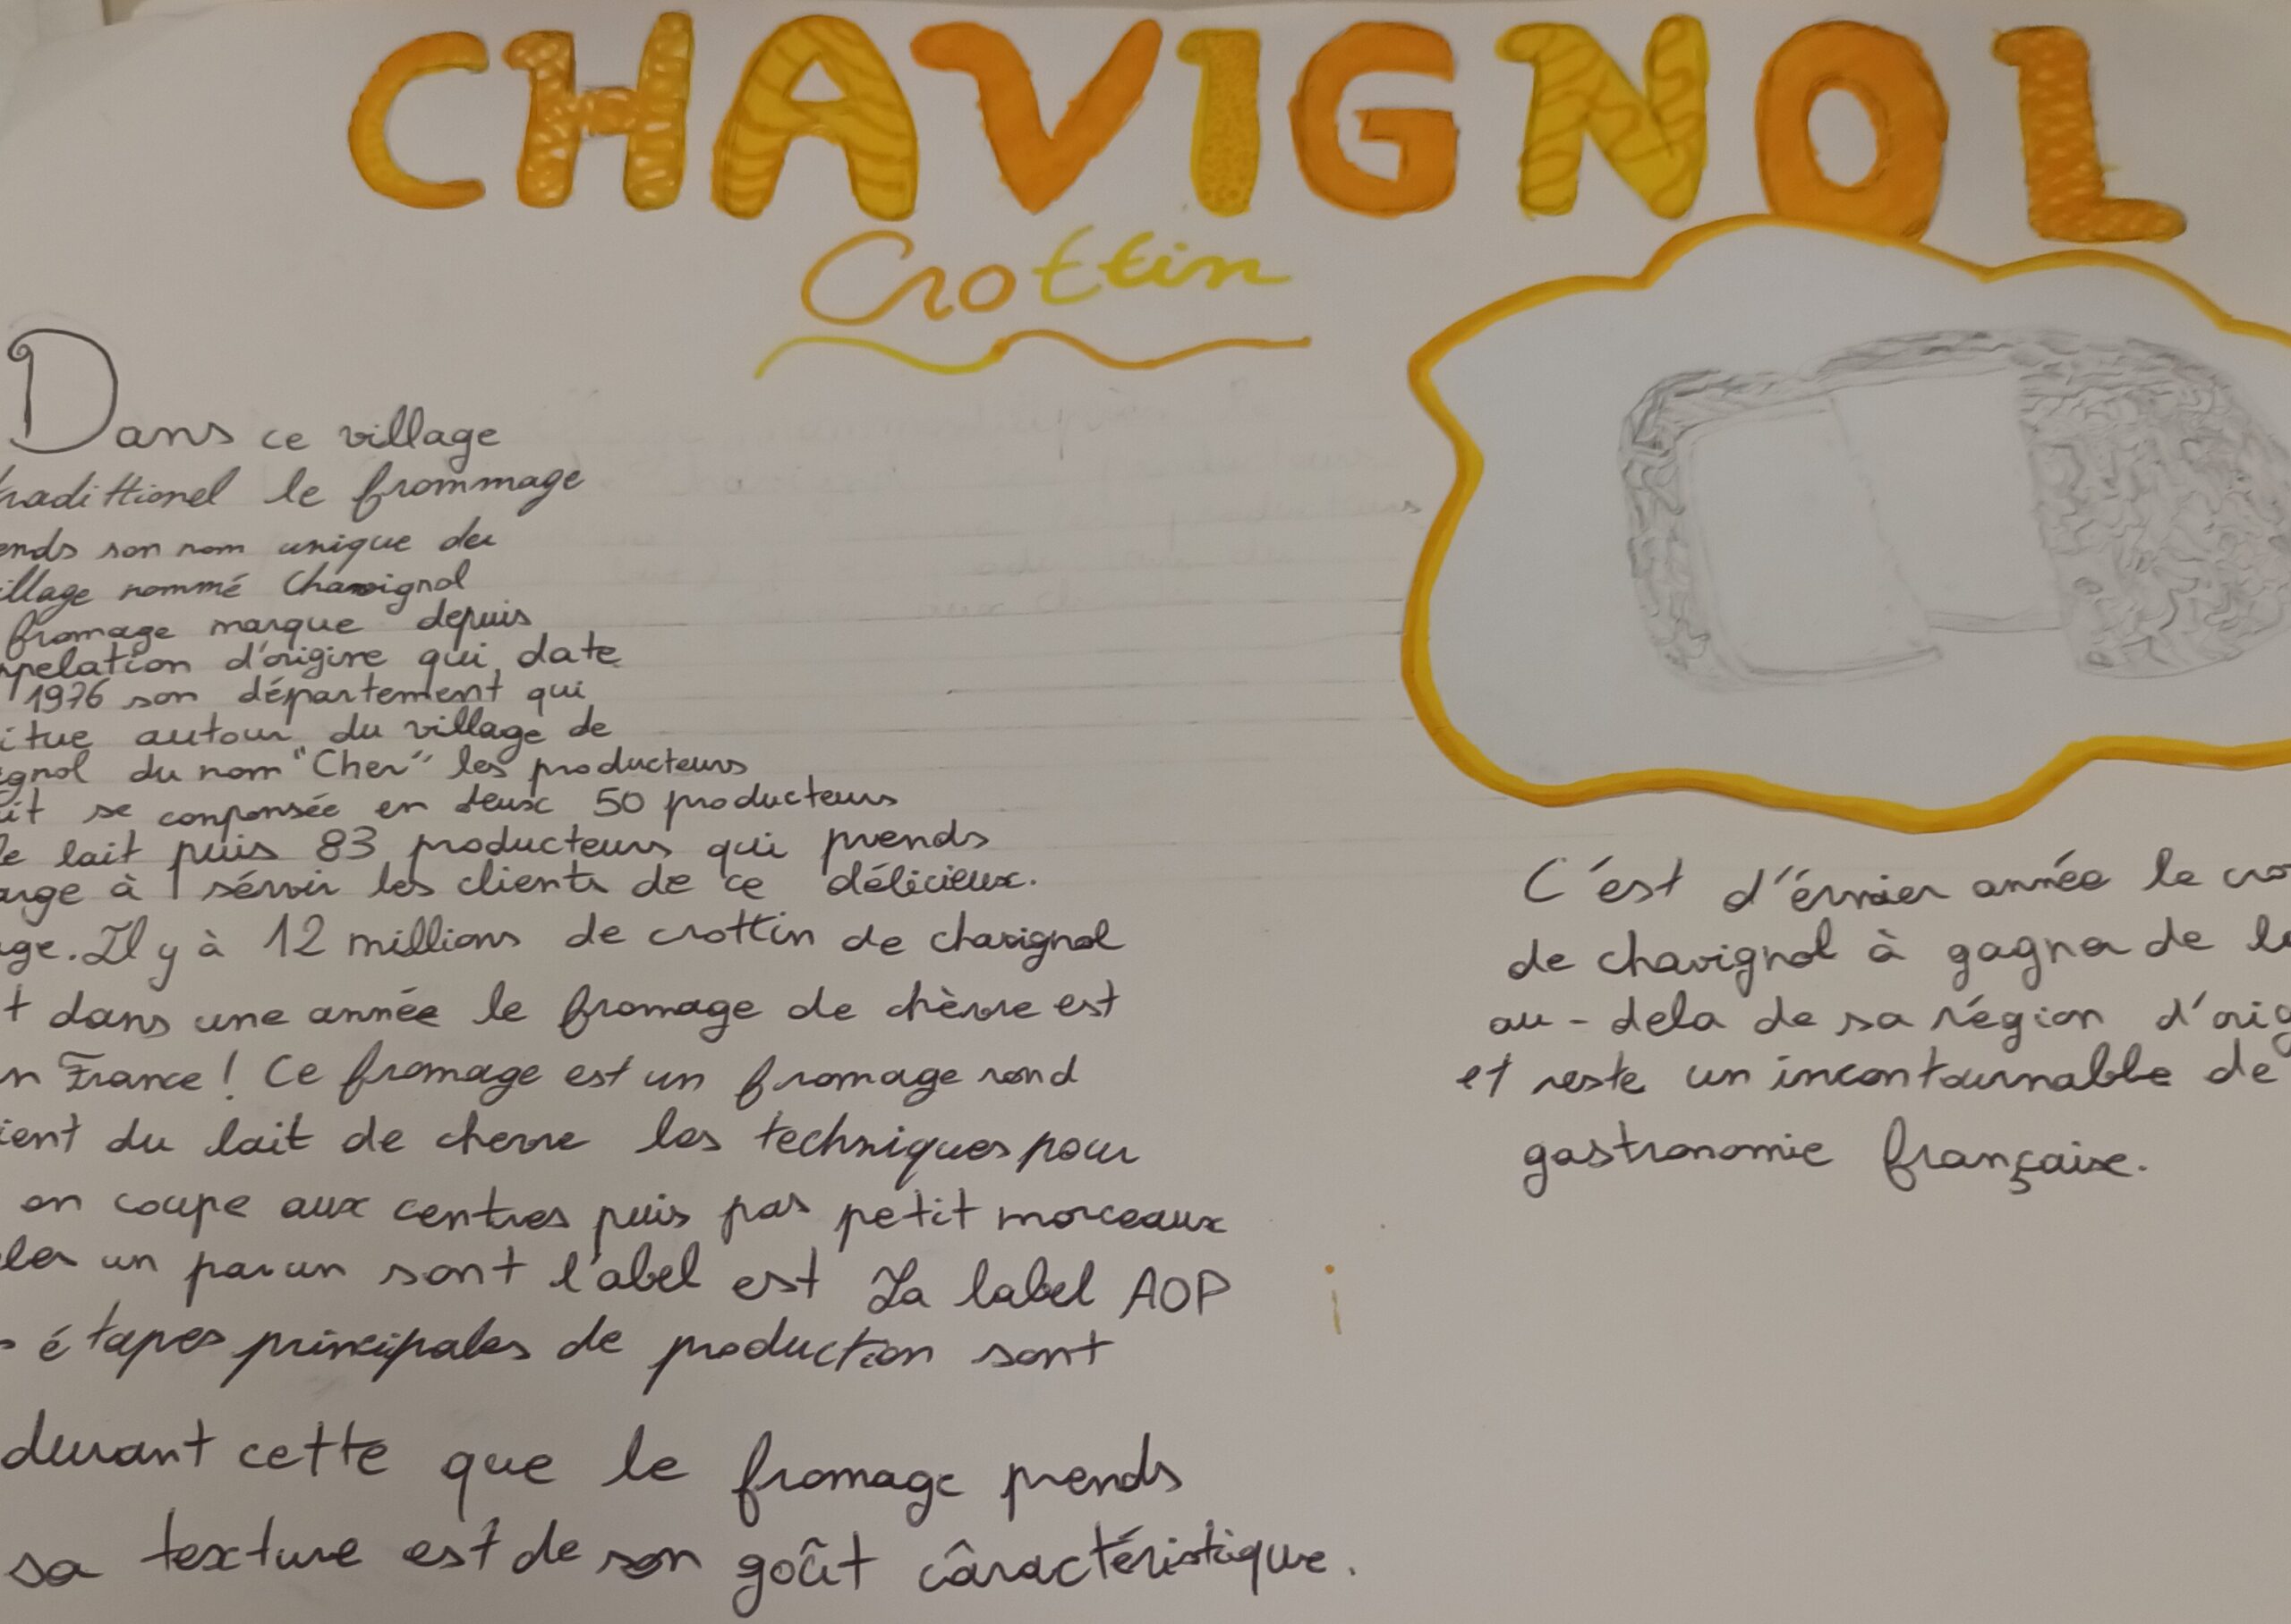 CHAVIGNOL
Crottin
Dans ce village
tradittionel le frommage
ends son nom unique du
illage nommé Chavignol
fromage marque depuis
ppelation d'origine qui date
1976 son département qui
itue autour du village de
gnol du nom "Cher" les producteurs
it se componsée en deux 50 producteurs
le lait puis 83 producteurs qui prends
arge à sérvir les clients de ce délicieux.
age. Il y à 12 millions de crottin de chavignol
t dans une année le fromage de chèvre est
n France ! Ce fromage est un fromage rond
ient du lait de chevre les techniques pour
on coupe aux centres puis pas petit morceaux
les un par un sont l'abel est La label AOP
s étapes principales de production sont
durant cette que le fromage prends
sa texture est de son goût câractéristique.
C'est d'érnier année le cro
de chavignol à gagner de l
au-dela de sa région d'orig
et reste un incontournable de
gastronomie française.